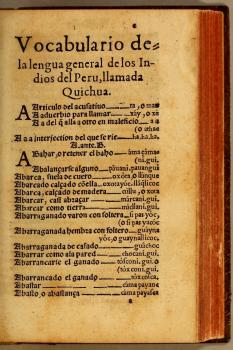 Vocabulario de-
la lengua general de los In-
dios del Peru, llamada
Quichua.
A Articulo del acusatiuo ta, o man
A aduerbio para llamar xiy, o xis
A a del q̃ asla a otro en maleficio a a
(o athac
A a a interjection del que se rie ha, ha, ha,
A. ante. B.
Abahar, o retener el baho
(ni. gui,
Abalançarse alguno pauani. pauangui
Abarca, suela de cuero oxota, o llanque
Abarcado calçado cõella
Abarca, calçado de madera
Abarcar, casi abraçar marcani. gui,
Abarcar como tierra
Abarraganado varon con soltera si pas yoc,
(o si pas yacoc
Abarraganada hembra con soltero guayna
yoc, o guaynallicoc,
Abarraganada de casado guáchoc
Abarrar como ala pared chocani. gui,
Abarrancarse el ganado
(tóxconi. gui,
Abarrancado el ganado
Abastar cima payane
Abasto, o abastança cima payasca
a